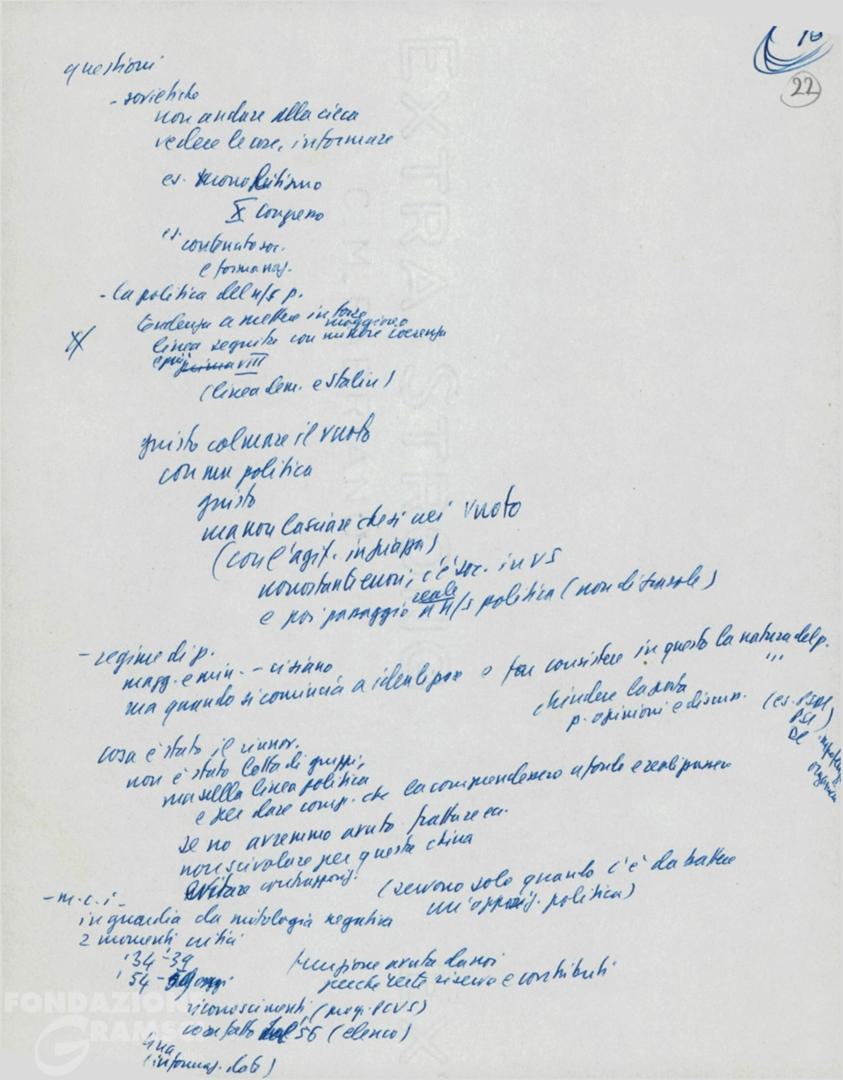 16
22
questioni
- sovietiche
non andare alla cieca
vedere le cose, informare
es. monolitismo
X Congresso
es. contenuto soc.
e formaz.
- la politica del n/s p.
tendenza a mettere in forse
linea seguita con maggiore o minore coerenza
e più prima VIII
(linea dem. e stalin)
giusto colmare il vuoto
con una politica
giusto
ma non lasciare che si crei vuoto
(con l'agit. in piazza)
nonostante errori, c'è soc. in US
e poi passaggio reale a n/s politica (non di frasole)
- regime di p.
magg. e min. - ci siano
ma quando si comincia a identificare e far consistere in questo la natura del p.
chiudere la porta
p. opinioni e discuss. (es. PSDI
PSI
DC
impotenza
organica
cosa è stato il rinnov.
non è stato lotta di gruppi,
ma sulla linea politica
e per dare comp. che la comprendessero a fondo e realizzassero
se no avremmo avuto fratture ecc.
non scivolare per questa china
evitare contrapposiz. (servono solo quando c'è da battere
un'opposiz. politica)
- m.c.i. -
in guardia da mitologia negativa
2 momenti critici
'34-'39
'54- oggi
funzione avuta da noi
perché certe riserve e contributi
riconoscimenti (mog. PCUS)
cosa fatto dal 56 (elenco)
(informaz. date)
FONDAZIONE
GRAMSCI
EXTRA STRONG